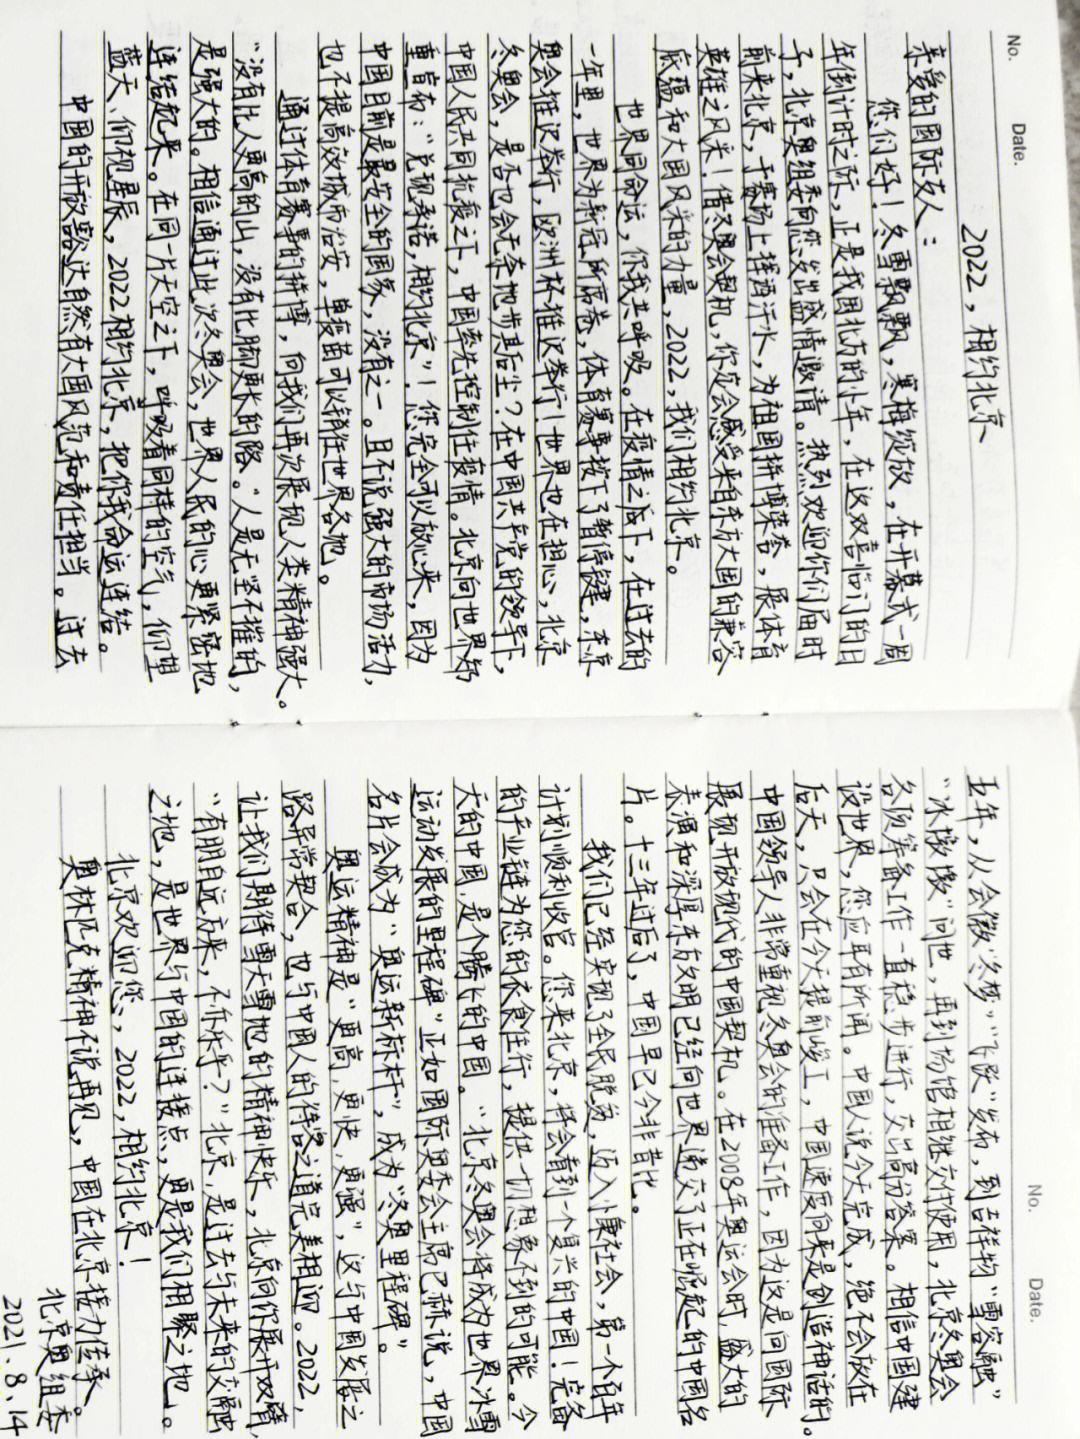 No.
Date.
2022，相约北京
亲爱的国际友人：
您们好！冬雪飘飘，寒梅绽放，在开幕式一周
年倒计时之际，正是我国北方的小年，在这双喜临门的日
子，北京奥组委向您发出盛情邀请。热烈欢迎你们届时
前来北京，于赛场上挥洒汗水，为祖国拼搏荣誉，展体育
英雄之风采！借冬奥会契机，你定会感受来自东方大国的兼容
底蕴和大国风采的力量，2022，我们相约北京。
世界同命运，你我共呼吸。在疫情之海下，在过去的
一年里，世界为新冠所席卷，体育赛事按下了暂停键，东京
奥会推迟举行，欧洲杯推迟举行！世界也在担心，北京
冬奥会，是否也会无奈地步其后尘？在中国共产党的领导下，
中国人民共同抗疫之下，中国率先控制住疫情。北京向世界郑
重宣布：“兑现承诺，相约北京”！您完全可以放心来，因为
中国目前是最安全的国家，没有之一。且不说强大的市场活力，
也不提高效城市治安，单疫苗可以销往世界各地。
通过体育赛事的拼搏，向我们再次展现人类精神强大。
“没有比人更高的山，没有比脚更长的路。”人是无坚不摧的，
是强大的。相信通过此次冬奥会，世界人民的心更紧密地
连结起来。在同一片天空之下，呼吸着同样的空气，仰望
蓝天，仰视星辰，2022相约北京，把你我命运连结。
中国的开放豁达自然有大国风范和责任担当。过去
No.
Date.
五年，从会徽“冬梦”“飞跃”发布，到吉祥物“雪容融”
“冰墩墩”问世，再到场馆相继交付使用，北京冬奥会
各项筹备工作一直稳步进行，交出高分答案。相信中国建
设世界，您应早有所闻。中国人说今天完成，绝不会放在
后天，只会在今天提前竣工，中国速度向来是创造神话的。
中国领导人非常重视冬奥会的准备工作，因为这是向国际
展现开放现代的中国契机。在2008年奥运会时，盛大的
表演和深厚东方文明已经向世界递交了正在崛起的中国名
片。十三年过后了，中国早已今非昔比。
我们已经实现了全民脱贫，迈入小康社会，第一个百年
计划顺利收官。您来北京，将会看到一个复兴的中国！完备
的产业链为您的衣食住行，提供一切想象不到的可能。今
天的中国，是个腾飞的中国。“北京冬奥会将成为世界冰雪
运动发展的里程碑”正如国际奥委会主席巴赫说，中国
名片会成为“奥运新标杆”，成为“冬奥里程碑”。
奥运精神是“更高，更快，更强”，这与中国发展之
路异常契合，也与中国人的待客之道完美相迎。2022，
让我们期待雪天雪地的精神快乐，北京向你展开双臂，
“有朋自远方来，不亦乐乎？”北京，是过去与未来的交融
之地，是世界与中国的连接点，更是我们相聚之地。
北京欢迎您，2022，相约北京！
奥林匹克精神不说再见，中国在北京接力传承。
北京奥组委
2021.8.14